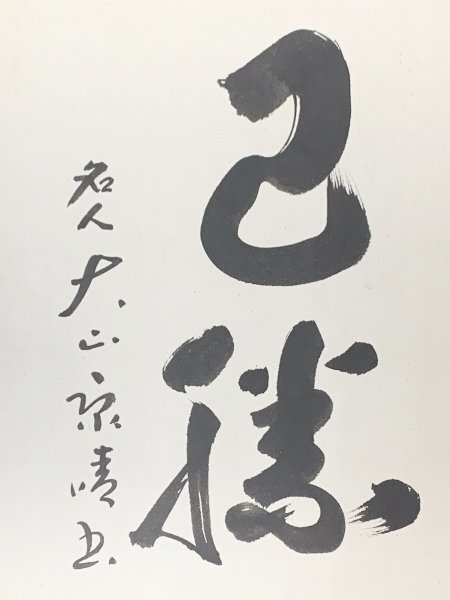 己勝
名人 大山康晴書